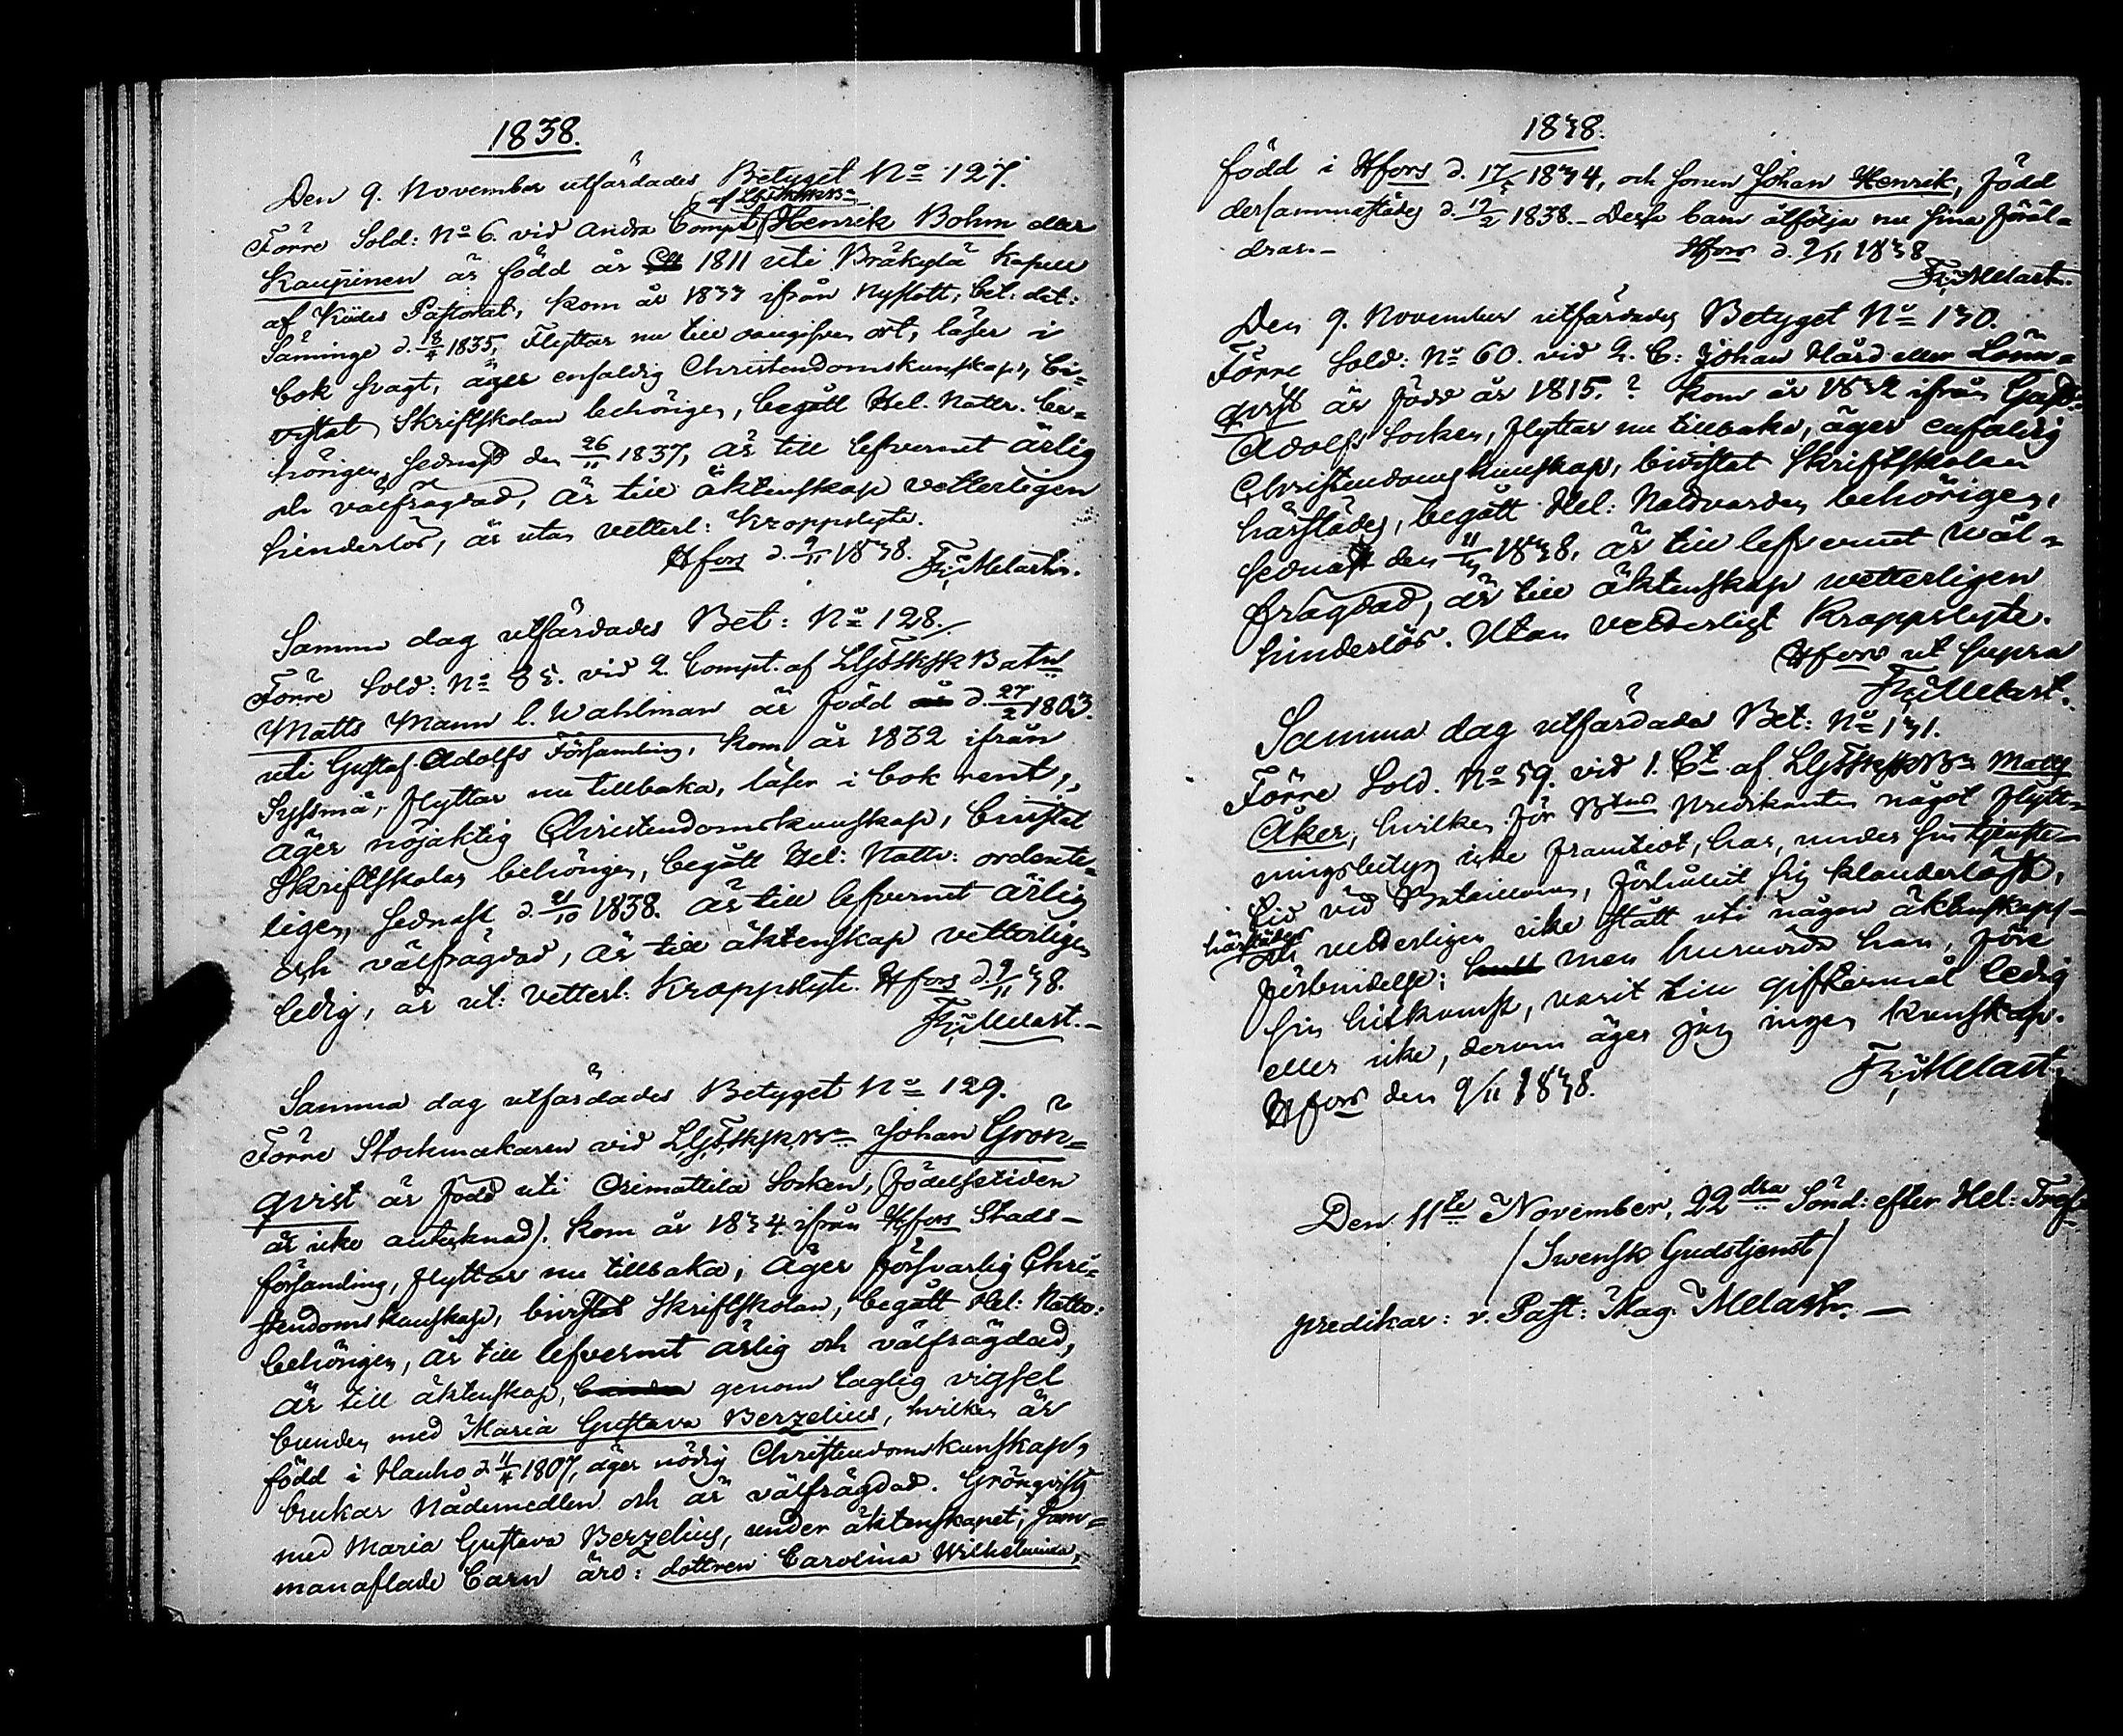 1838.
Den 9. November utfärdades Betyget No 127.
af LGdsFSkskBn
Förre Sold: No 6. vid andra Compt Henrik Bohm eller
Kaupinen är född år 1811 uti Bräkylä Kapell
af Kides Pastorat, kom år 1833 ifrån Nyslott, bet: dat:
Säminge d. 18/4 1835, Flyttar nu till ort, läser i
bok svagt, äger enfaldig Christendomskunskap, bi=
vistat Skriftskolan behörigen, begått Hel. Nattv. be=
hörigen, sednast den 26/11 1837, är till lefvernet ärlig
och välfrägdad, är till äktenskap vetterligen
hinderlös, är utan vetterl: Kroppslyte.
Hfors d. 9/11 1838. Fr: Melartin.
Samma dag utfärdades Bet: No 128.
Förre Sold: No 85. vid 2. Compt. af LGdsFSkskBatn
Matts Mann l. Wahlman är född d. 27/2 1803.
uti Gustaf Adolfs Församling, kom år 1832 ifrån
Syssmä, flyttar nu tillbaka, läser i bok rent,
äger nöjaktig Christendomskunskap, bivistat
Skriftskolan behörigen, begått Hel: Nattv: ordente=
ligen, sednast d. 21/10 1838. är till lefvernet ärlig
och välfrägdad, är till äktenskap vetterligen
ledig, är ut: vetterl: Kroppslyte. Hfors d. 9/11 38.
Fr: Melart.-
Samma dag utfärdades Betyget No 129.
Förre Stockmakaren vid LGdsFSkskBn Johan Grön=
qvist är född uti Orimattila Socken, (födelsetiden
är icke antecknad). kom år 1834 ifrån Hfors Stads-
församling, flyttar nu tillbaka, äger försvarlig Chri=
stendomskunskap, bivistat Skriftskolan, begått Hel: Nattv:
behörigen, är till lefvernet ärlig och välfrägdad,
är till äktenskap, genom laglig vigsel
bunden med Maria Gustava Berzelius, hvilken är
född i Hauho d. 11/4 1807, äger nödig Christendomskunskap,
brukar Nådemedlen och är välfrägdad. Grönqvists
med Maria Gustava Berzelius, under äktenskapet, sam=
manaflade barn äro: dottren Carolina Wilhelmina,
1838.
född i Hfors d. 17/5 1834, och sonen Johan Henrik, född
dersammastädes d. 19/2 1838. - Dessa barn åtfölja nu sina föräl=
drar.- Hfors d. 9/11 1838
Fr: Melart.
Den 9. November utfärdades Betyget No 130.
Förre Sold: No 60. vid 2. C: Johan Hård eller Lönn=
qvist är född år 1815.? kom år 1832 ifrån Gust:
Adolfs Socken, flyttar nu tillbaka, äger enfaldig
Christendomskunskap, bivistat Skriftskolan
härstädes, begått Hel: Nattvarden behörigen,
sednast den 11/3 1838, är till lefvernet wäl=
frägdad, är till äktenskap wetterligen
hinderlös. Utan vetterligt Kroppslyte.
Hfors ut supra
Fr: Melart.
Samma dag utfärdades Bet: No 131.
Förre Sold. No 59. vid 1. Ct af LGdsFSkskBn Matts
Åker, hvilken för Btns Predikanten något flytt=
ningsbetyg icke framtedt, har, under sin tjenste-
tid vid Bataillonen, förhållit sig klanderlöst,
härstädes
och vetterligen icke stått uti någon äktenskaps-
förbindelse; men huruvida han, före
sin hitkomst, varit till giftermål ledig
eller icke, derom äger jag ingen kunskap.
Hfors den 9/11 1838. Fr: Melart.
Den 11te November, 22dra Sönd: efter Hel: Tref:
/Swensk Gudstjenst/
predikar: v. Past: Mag. Melartn. -